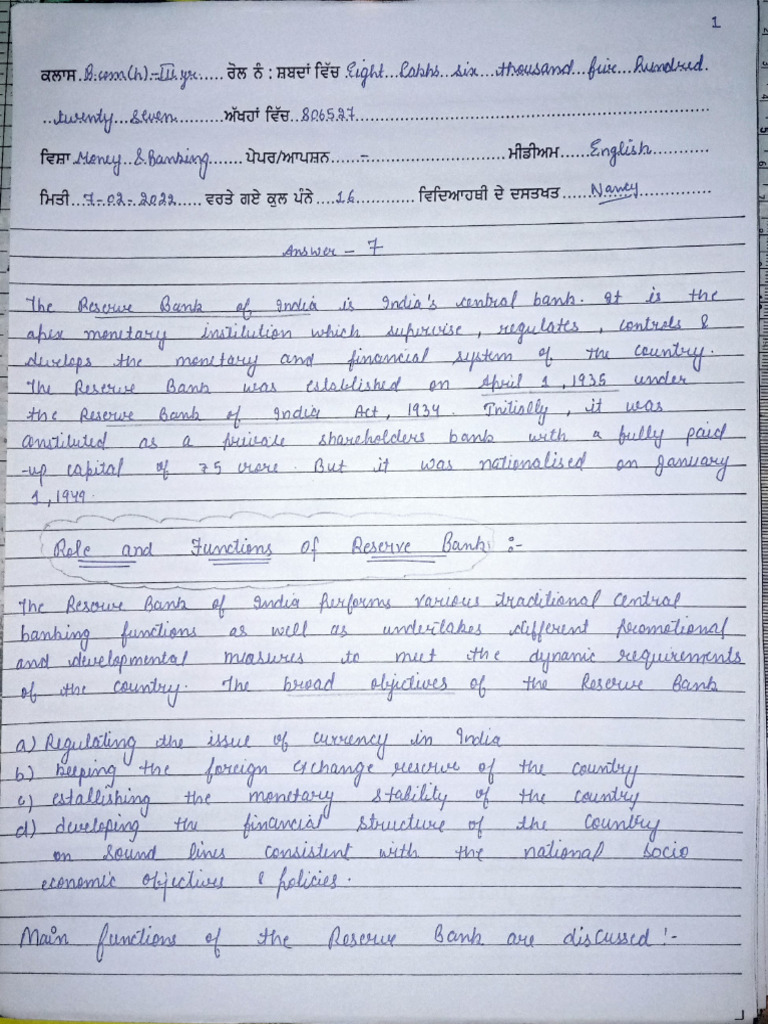 1
ਕਲਾਸ. B.com(h)-IIyr..... ਰੋਲ ਨੰ : ਸ਼ਬਦਾਂ ਵਿੱਚ Eight...Lakhs...six...thousand...five...hundred.
...twenty...seven..........ਅੱਖਰਾਂ ਵਿੱਚ..806527.....
ਵਿਸ਼ਾ Money...&Banking....... ਪੇਪਰ/ਆਪਸ਼ਨ.......-........ ਮੀਡੀਅਮ......English............
ਮਿਤੀ ..7-02-2022...... ਵਰਤੇ ਗਏ ਕੁਲ ਪੰਨੇ ....16............. ਵਿਦਿਆਰਥੀ ਦੇ ਦਸਤਖਤ.......Nancy...............
Answer - 7
The Reserve Bank of India is India's central bank. It is the
apex monetary institution which supervise, regulates, controls &
develops the monetary and financial system of the country.
The Reserve Bank was established on April 1, 1935 under
the Reserve Bank of India Act, 1934. Initially, it was
constituted as a private shareholders bank with a fully paid
-up capital of 75 crore. But it was nationalised on January
1, 1949.
Role and Functions of Reserve Bank :-
The Reserve Bank of India performs various traditional central
banking functions as well as undertakes different promotional
and developmental measures to meet the dynamic requirements
of the country. The broad objectives of the Reserve Bank
a) Regulating the issue of currency in India
b) keeping the foreign exchange reserve of the country
c) establishing the monetary stability of the country
d) developing the financial structure of the country
on sound lines consistent with the national socio
economic objectives & policies.
Main functions of the Reserve Bank are discussed :-